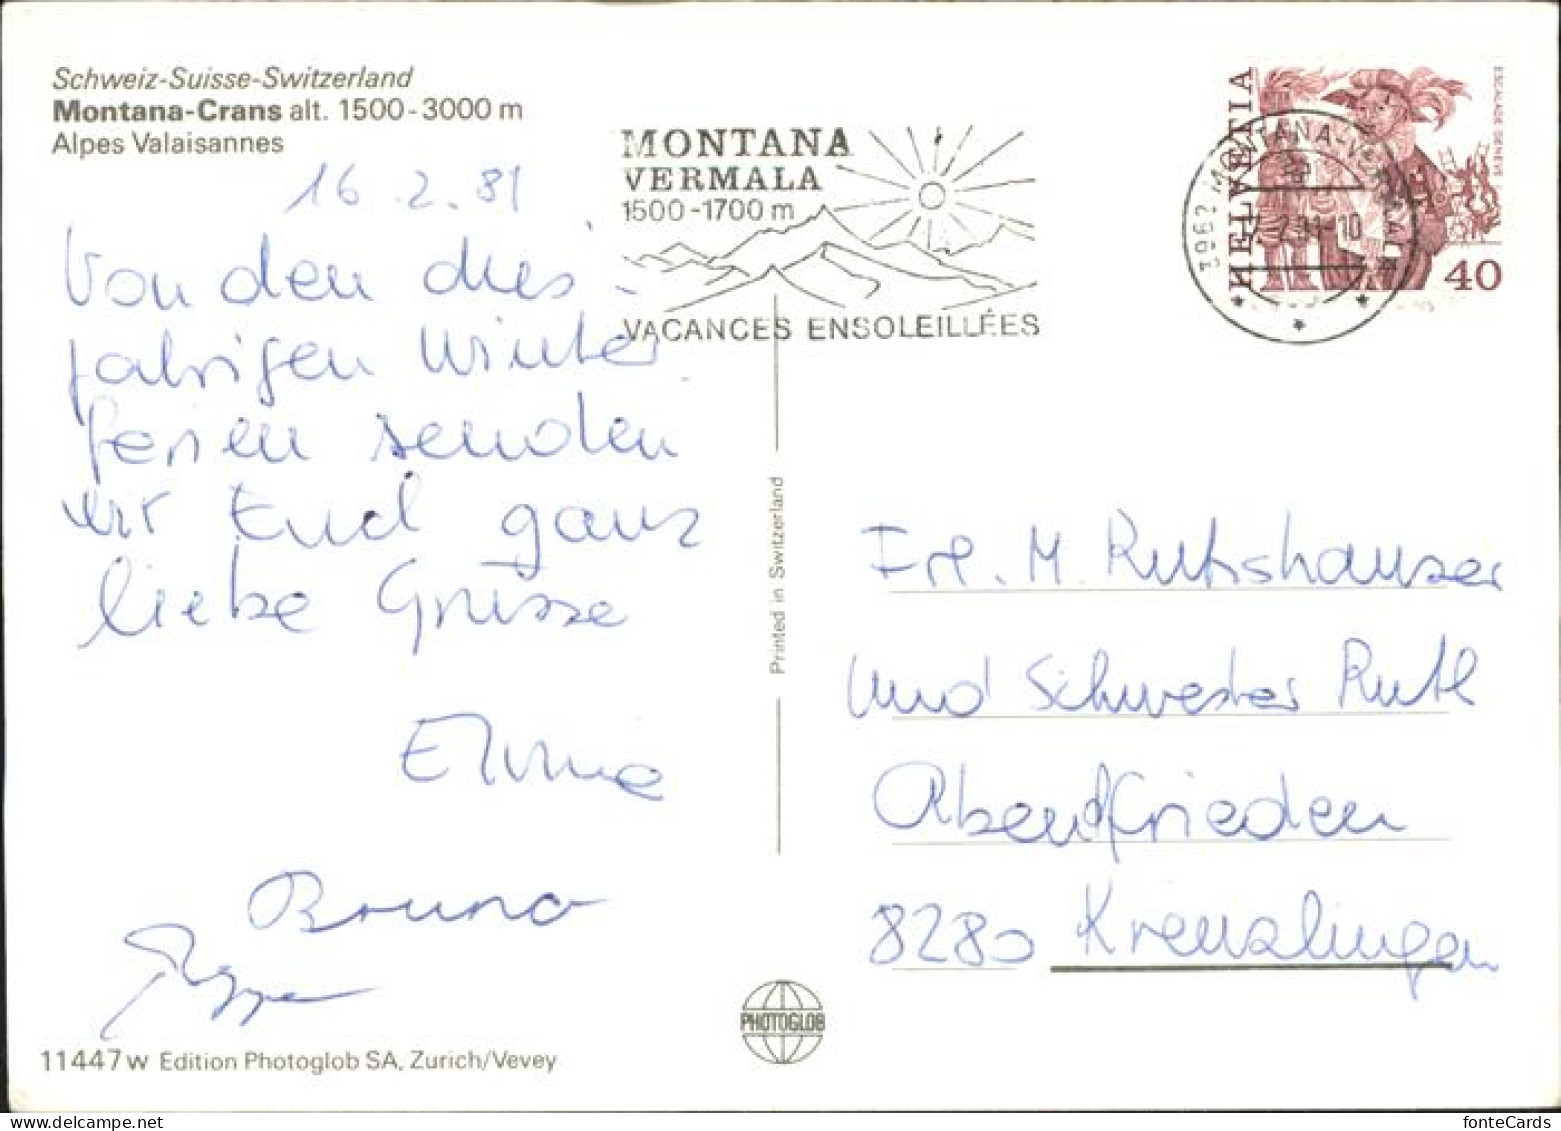 Schweiz-Suisse-Switzerland
Montana-Crans alt. 1500-3000 m
Alpes Valaisannes
16.2.81
Von den dies-
jahrigen Winter
ferien senden
wir Euch ganz
liebe Grüsse
Bruno
11447 w Edition Photoglob SA, Zurich/Vevey
MONTANA
VERMALA
1500-1700 m
VACANCES ENSOLEILLÉES
3962 MONTANA-VERMALA
HELVETIA
ESCALADE GENEVE
40
Printed in Switzerland
PHOTOGLOB
Frl. M. Rutishauser
und Schwester Ruth
Abendfrieden
8280 Kreuzlingen
fonteCards